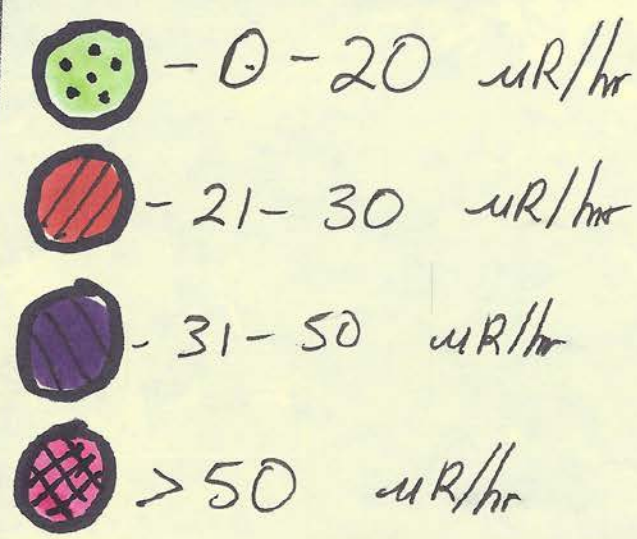 - 0 - 20 µR/hr
- 21 - 30 µR/hr
- 31 - 50 µR/hr
> 50 µR/hr